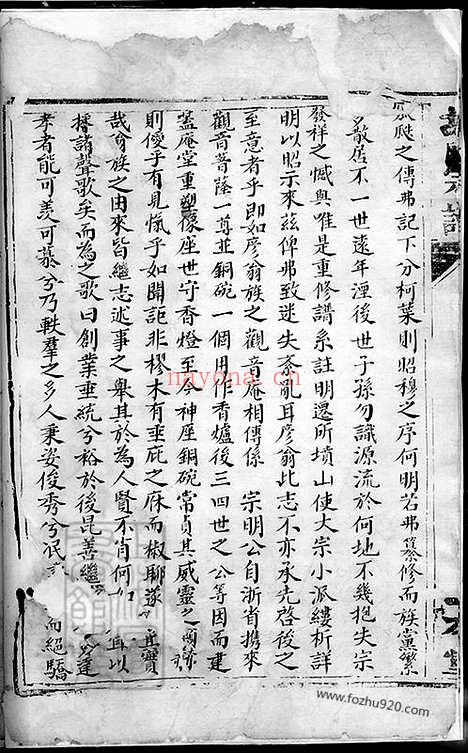 瓜瓞之傳弗記下分柯葉則昭穆之序何明若弗纂修而族黨繁
多散居不一世遠年湮後世子孫勿識源流於何地不幾抱失宗
發祥之憾與唯是重修譜系註明遷所墳山使大宗小派縷析詳
明以昭示來茲俾弗致迷失紊亂耳彥翁比志不亦承先啓後之
至意者乎即如彥翁族之觀音庵相傳係 宗明公自浙省携來
觀音菩薩一尊並銅碗一個用作香爐後三四世之公等因而建
蓋庵堂重塑像座世守香燈至今神座銅碗常貞其威靈之
則僾乎有見愾乎如聞詎非樛木有垂庇之庥而椒聊遂 實
哉翁族之由來皆繼志述事之舉其於為人賢不肖何如 耳以
播諸聲歌矣而為之歌曰創業垂統兮裕於後昆善繼 達
孝者能可羨可慕兮乃軼羣之多人秉姿俊秀兮 而絕驕
nayona.cn
www.fozhu920.com